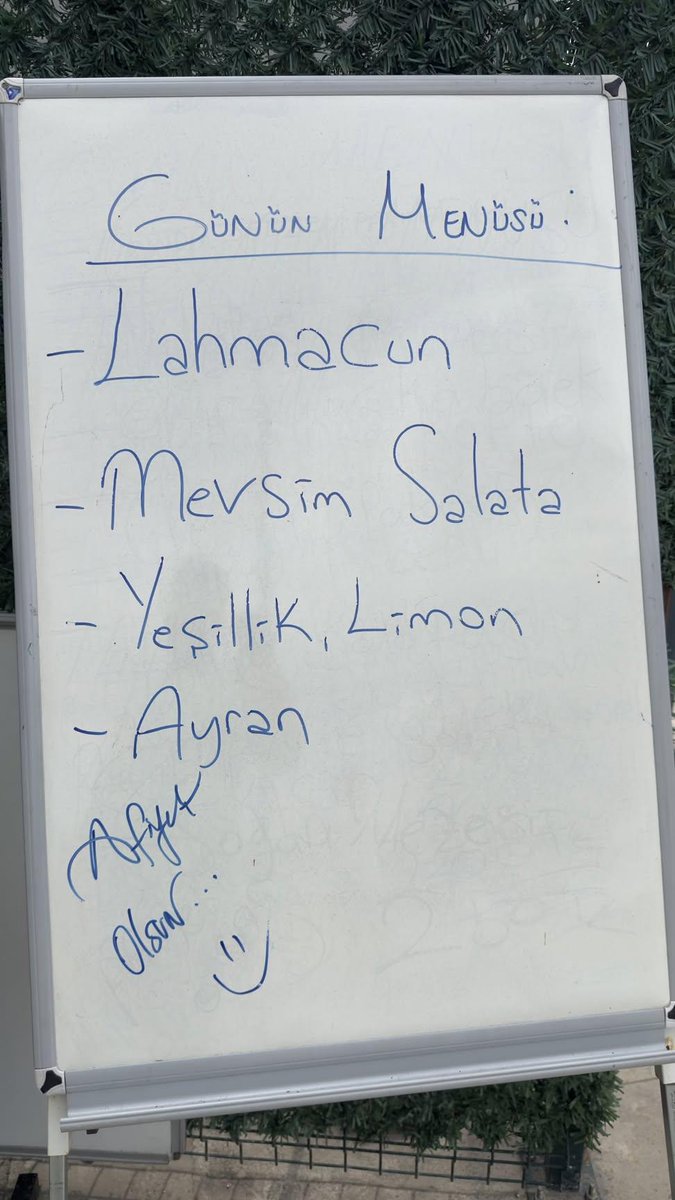 GÜNÜN MENÜSÜ:
- Lahmacun
- Mevsim Salata
- Yeşillik, Limon
- Ayran
Afiyet
Olsun...